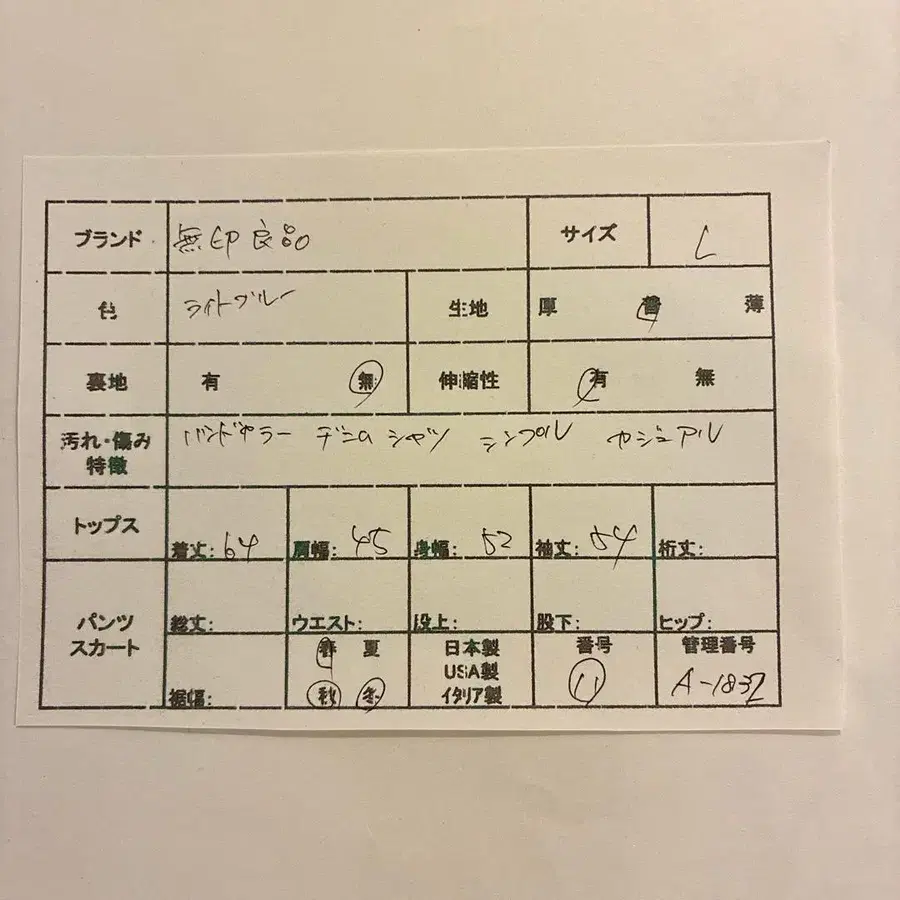 ブランド 無印良品 サイズ L
色 ライトブルー 生地 厚 普 薄
裏地 有 無 伸縮性 有 無
汚れ・傷み 特徴 バンドカラー デニム シャツ シンプル カジュアル
トップス 着丈: 64 肩幅: 45 身幅: 52 袖丈: 54 裄丈:
パンツ スカート 総丈: ウエスト: 股上: 股下: ヒップ:
裾幅: 春 夏 秋 冬 日本製 USA製 イタリア製 番号 11 管理番号 A-1832